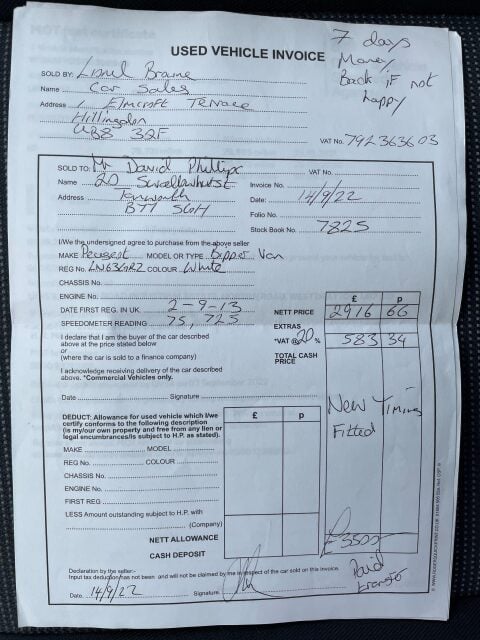 USED VEHICLE INVOICE
7 days
Money
Back if not
happy
SOLD BY: Lionel Browne
Name Car Sales
Address 1 Elmcroft Terrace
Hillingdon
UB8 3QF
VAT No. 792 3636 03
SOLD TO: Mr David Phillips
VAT No.
Name 20 Swallowhurst
Invoice No.
Address Tamworth
Date: 14/9/22
B77 5GH
Folio No.
Stock Book No. 7825
I/We the undersigned agree to purchase from the above seller
MAKE Peugeot MODEL OR TYPE Bipper Van
REG No. COLOUR White
CHASSIS No.
ENGINE No.
£ p
DATE FIRST REG. IN UK. 2-9-13
NETT PRICE 2916 66
SPEEDOMETER READING 75,725
EXTRAS
I declare that I am the buyer of the car described
above at the price stated below
*VAT @ 20 % 583 34
or
(where the car is sold to a finance company)
TOTAL CASH
PRICE
I acknowledge receiving delivery of the car described
above. *Commercial Vehicles only.
Date Signature
New Timing
Fitted
DEDUCT: Allowance for used vehicle which I/we
certify conforms to the following description
(is my/our own property and free from any lien or
legal encumbrances/is subject to H.P. as stated).
£ p
MAKE MODEL
REG No. COLOUR
CHASSIS No.
ENGINE No.
FIRST REG
LESS Amount outstanding subject to H.P. with
(Company)
NETT ALLOWANCE
£3500
CASH DEPOSIT
Declaration by the seller:-
Input tax deduction has not been and will not be claimed by me in respect of the car sold on this invoice.
Paid
transfer
Date 14/9/22 Signature